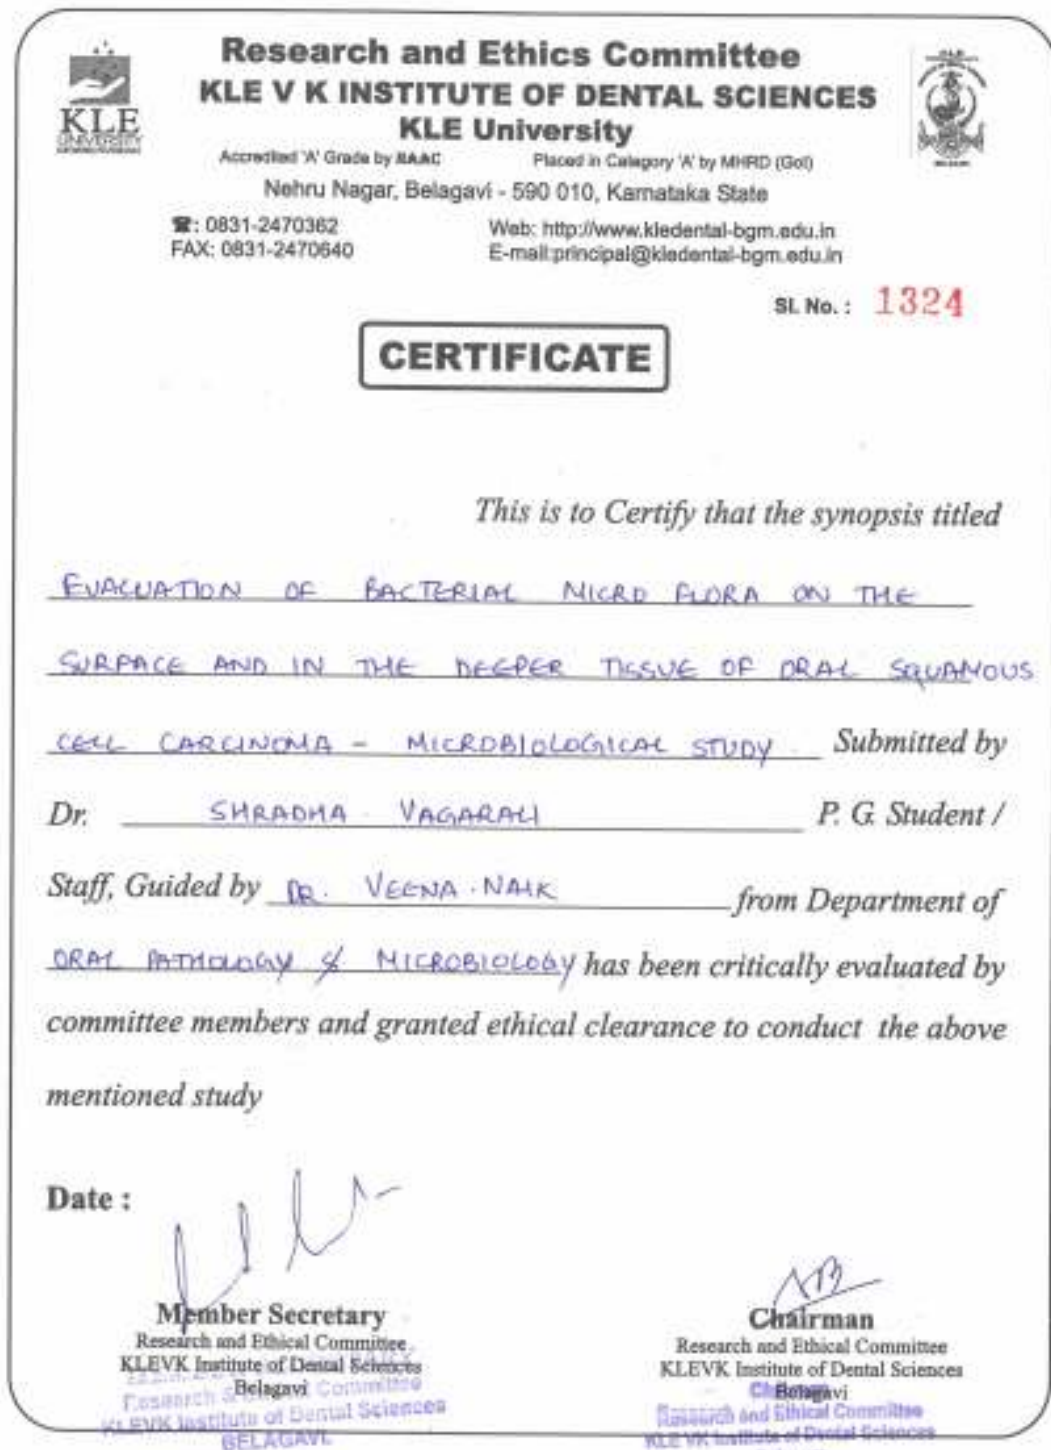 Research and Ethics Committee
KLE V K INSTITUTE OF DENTAL SCIENCES
KLE University
KLE
UNIVERSITY
Accredited 'A' Grade by NAAC Placed in Category 'A' by MHRD (GoI)
Nehru Nagar, Belagavi - 590 010, Karnataka State
☎: 0831-2470362 Web: http://www.kledental-bgm.edu.in
FAX: 0831-2470640 E-mail:principal@kledental-bgm.edu.in
Sl. No. : 1324
CERTIFICATE
This is to Certify that the synopsis titled
EVALUATION OF BACTERIAL MICRO FLORA ON THE
SURFACE AND IN THE DEEPER TISSUE OF ORAL SQUAMOUS
CELL CARCINOMA - MICROBIOLOGICAL STUDY. Submitted by
Dr. SHRADHA VAGARALI P. G. Student /
Staff, Guided by DR. VEENA . NAIK from Department of
ORAL PATHOLOGY & MICROBIOLOGY has been critically evaluated by
committee members and granted ethical clearance to conduct the above
mentioned study
Date :
Member Secretary Chairman
Research and Ethical Committee Research and Ethical Committee
KLEVK Institute of Dental Sciences KLEVK Institute of Dental Sciences
Belagavi Belagavi
Research & Committee Chairman
KLEVK Institute of Dental Sciences Research and Ethical Committee
BELAGAVI. KLE VK Institute of Dental Sciences